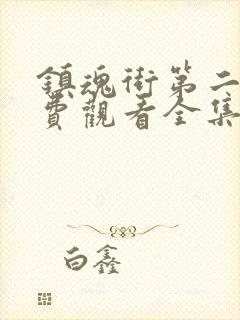 鎮魂街第二
費觀看全集
白鑫